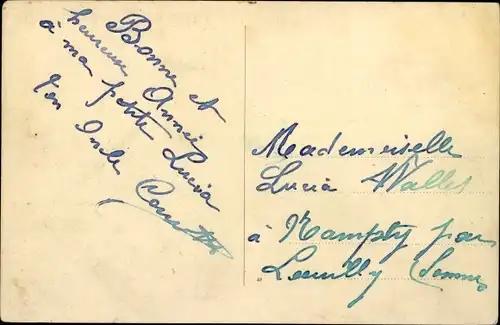 Bonne et
heureuse Année
à ma petite Lucia
Ton Oncle
Mademoiselle
Lucia Wallet
à Nampty par
Lœuilly (Somme)